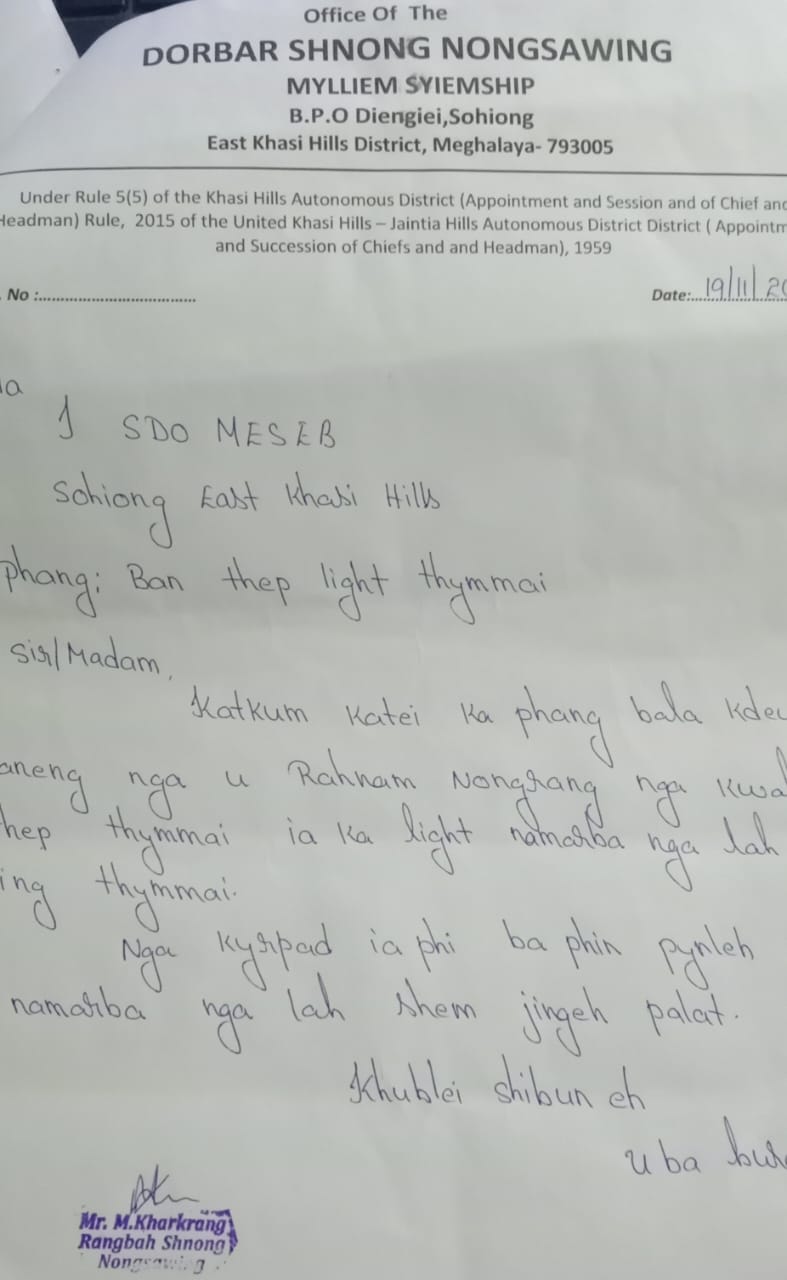 Office Of The
DORBAR SHNONG NONGSAWING
MYLLIEM SYIEMSHIP
B.P.O Diengiei,Sohiong
East Khasi Hills District, Meghalaya- 793005
Under Rule 5(5) of the Khasi Hills Autonomous District (Appointment and Session and of Chief and
Headman) Rule, 2015 of the United Khasi Hills – Jaintia Hills Autonomous District District ( Appointm
and Succession of Chiefs and and Headman), 1959
No :....................................
Date:....19/11/20
SDO MESEB
Sohiong East Khasi Hills
phang: Ban thep light thymmai
Sir/Madam,
Katkum katei ka phang bala kdew
aneng nga u Rahnam Nongrang nga kwa
hep thymmai ia ka light namarba nga lah
ing thymmai.
Nga kyrpad ia phi ba phin pynleh
namarba nga lah shem jingeh palat.
Khublei shibun eh
u ba bur
Mr. M.Kharkrang
Rangbah Shnong
Nongsawing